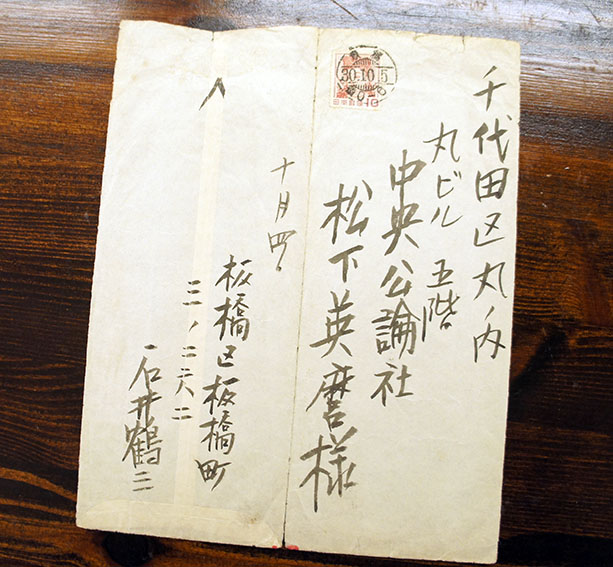 千代田区丸ノ内
丸ビル 五階
中央公論社
松下英麿様
30.10.5
10
十月四日
板橋区板橋町
三ノ二六二
石井鶴三